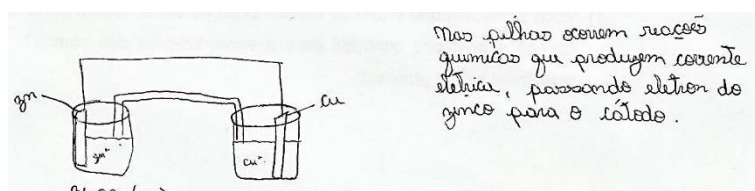 Nas pilhas ocorrem reações
químicas que produzem corrente
elétrica, passando eletron do
zinco para o cátodo.
Zn
Cu
Zn⁺
Cu⁺